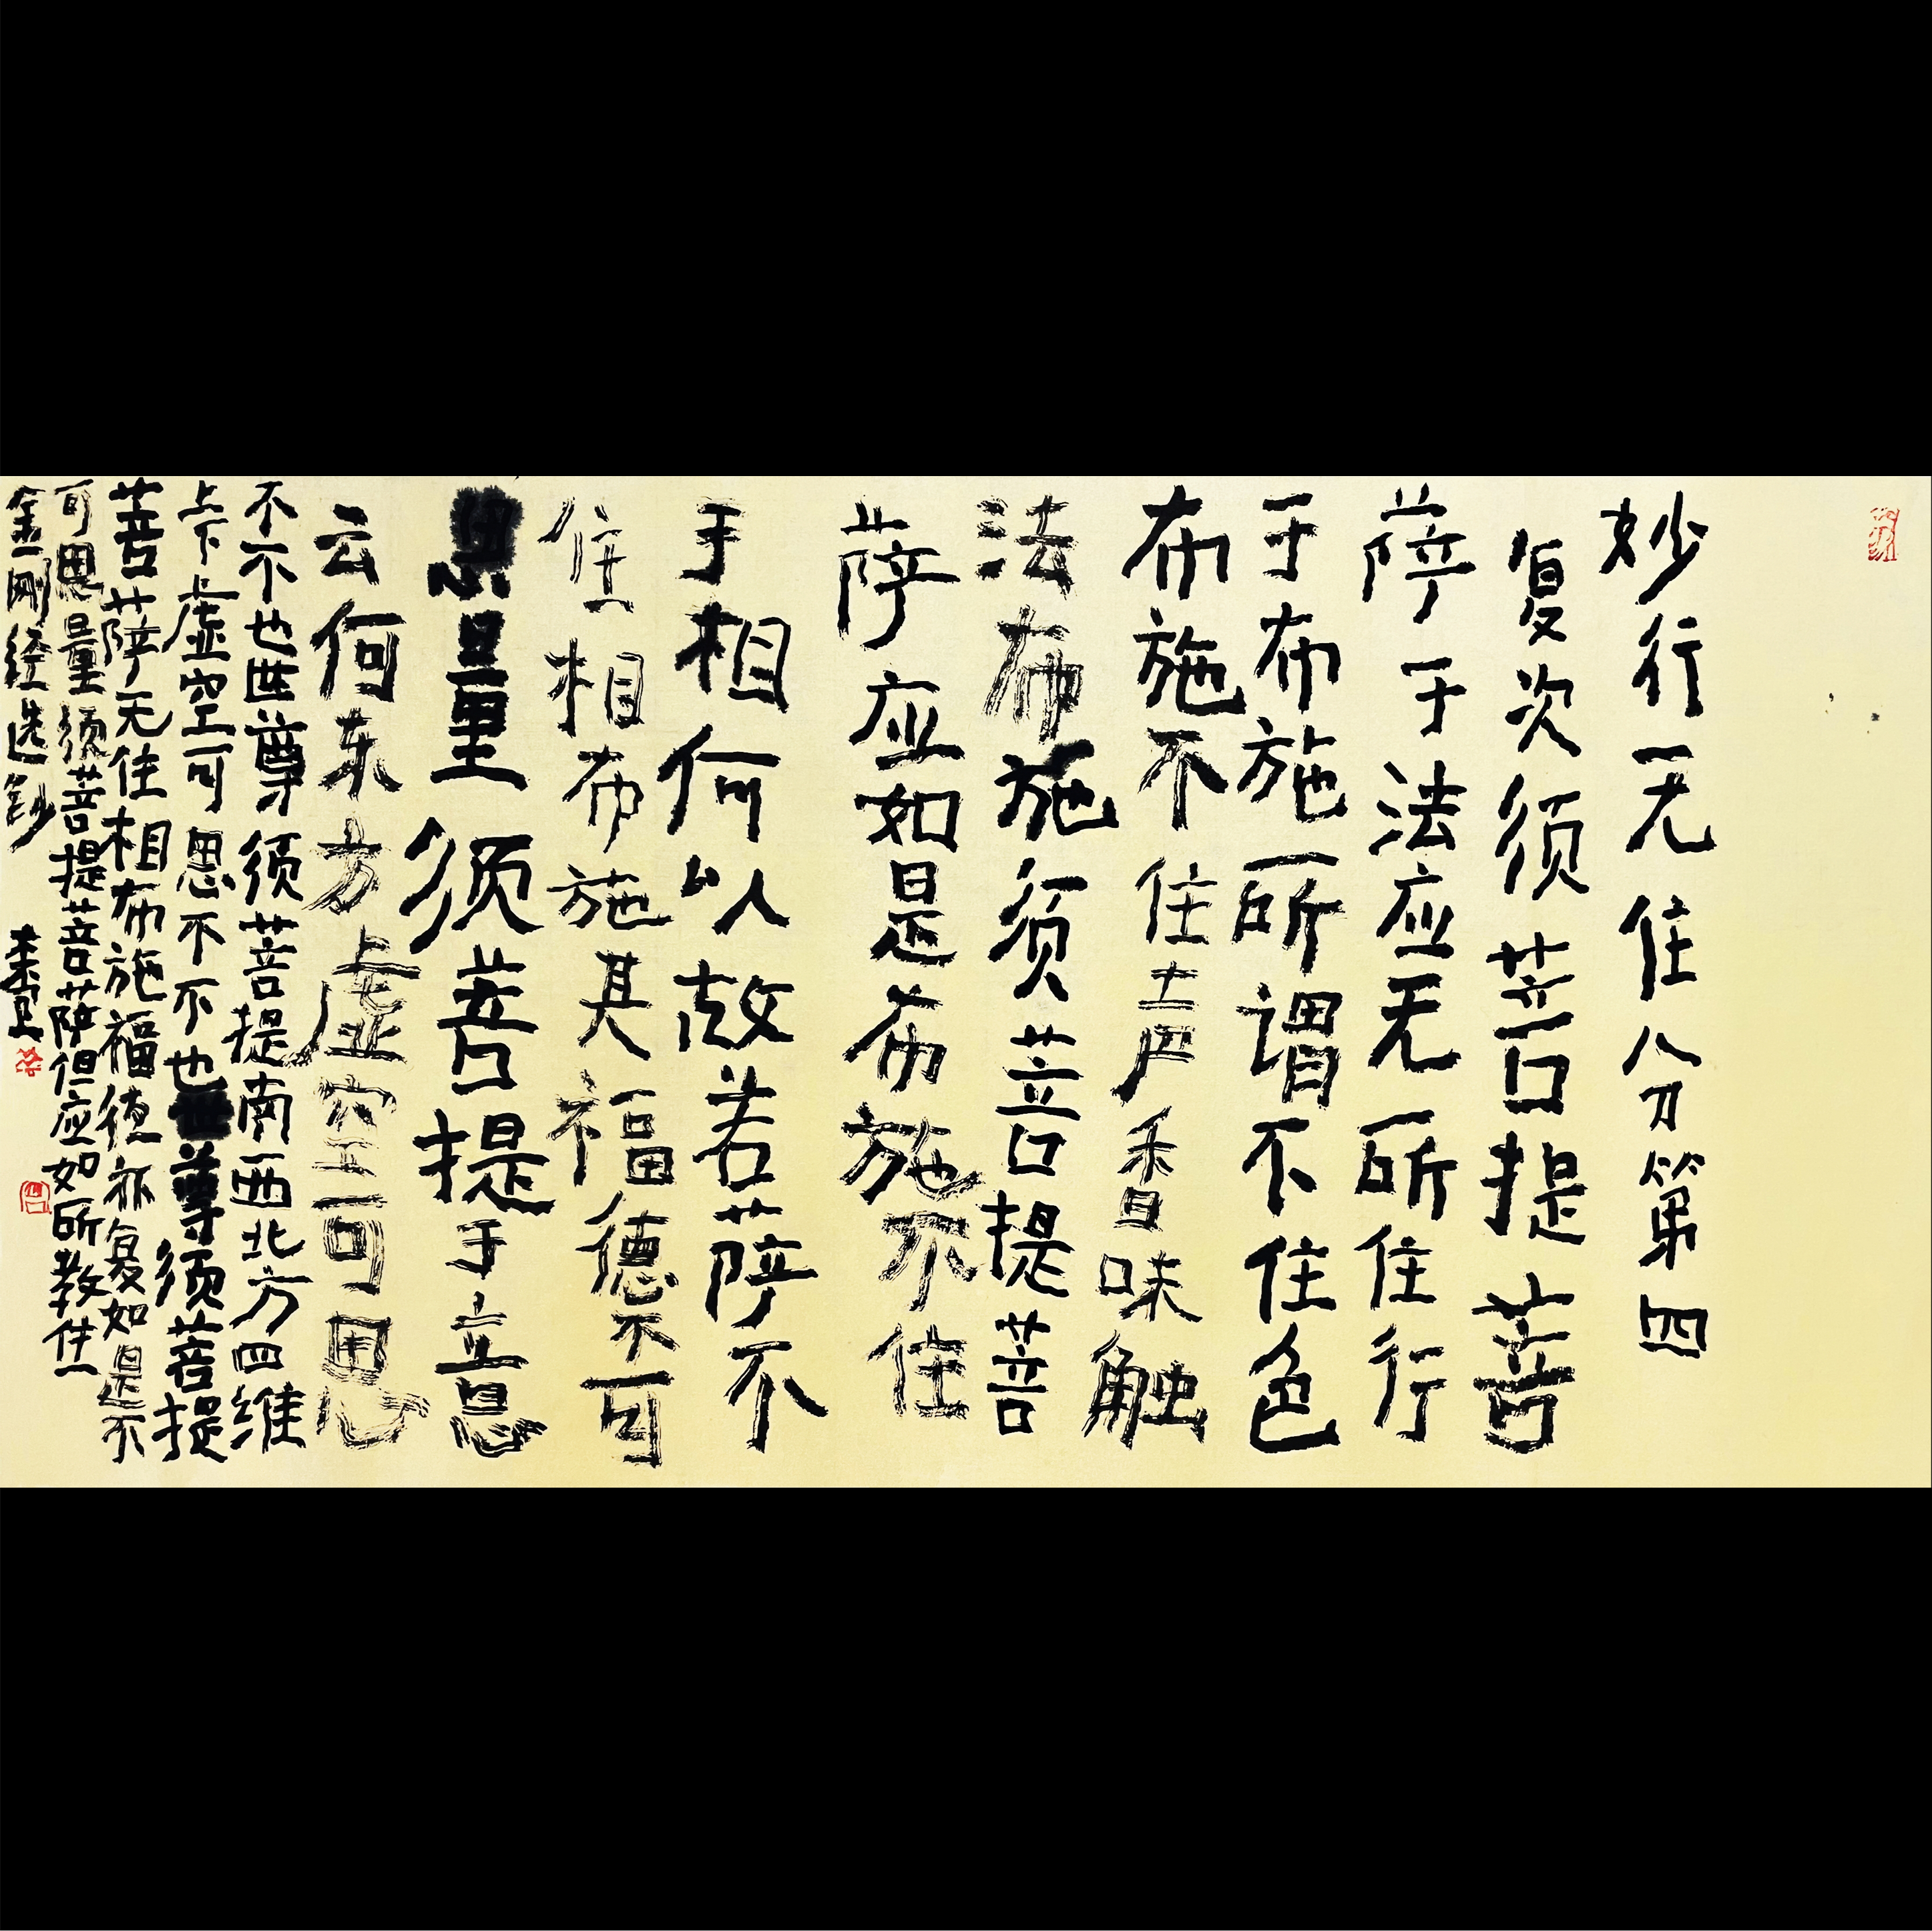 妙行无住分第四
复次须菩提菩
萨于法应无所住行
于布施所谓不住色
布施不住声香味触
法布施须菩提菩
萨应如是布施不住
于相何以故若萨不
住相布施其福德不可
思量须菩提于意
云何东方虚空可思
不不也世尊须菩提南西北方四维
上下虚空可思不不也世尊须菩提
菩萨无住相布施福德亦复如是不
可思量须菩提菩萨但应如所教住
金刚经选钞